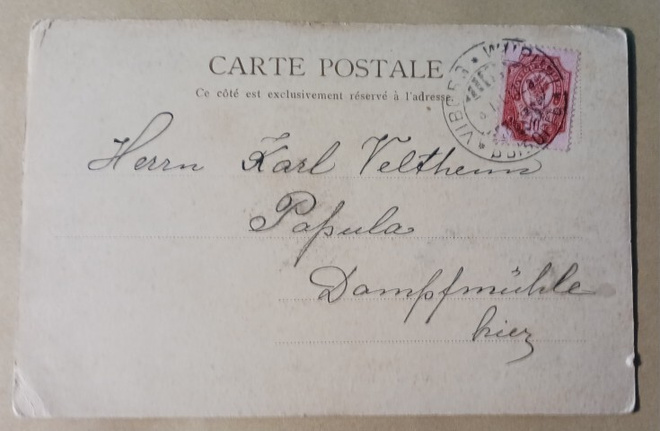 CARTE POSTALE
Ce côté est exclusivement réservé à l'adresse
WIIPURI
VIBORG
Herrn Karl Veltheim
Papula
Dampfmühle
hier